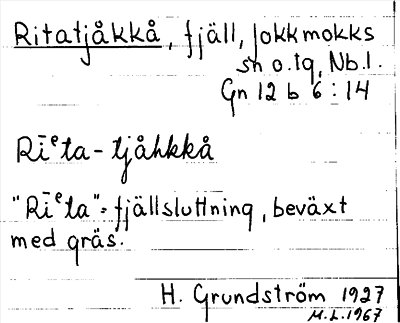 Ritatjåkkå, fjäll, Jokkmokks
sn o. tg, Nb.l.
Gn 12 b 6:14
Rīᵉta-tjåhkkå
"Rīᵉta"= fjällsluttning, beväxt
med gräs.
H. Grundström 1927
M.L. 1967